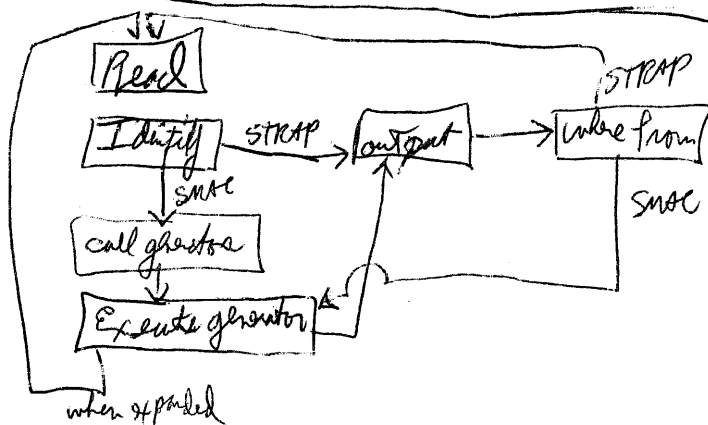 Read
STRAP
Identify
STRAP
output
where from
SMAC
SMAC
call generator
Execute generator
when expanded